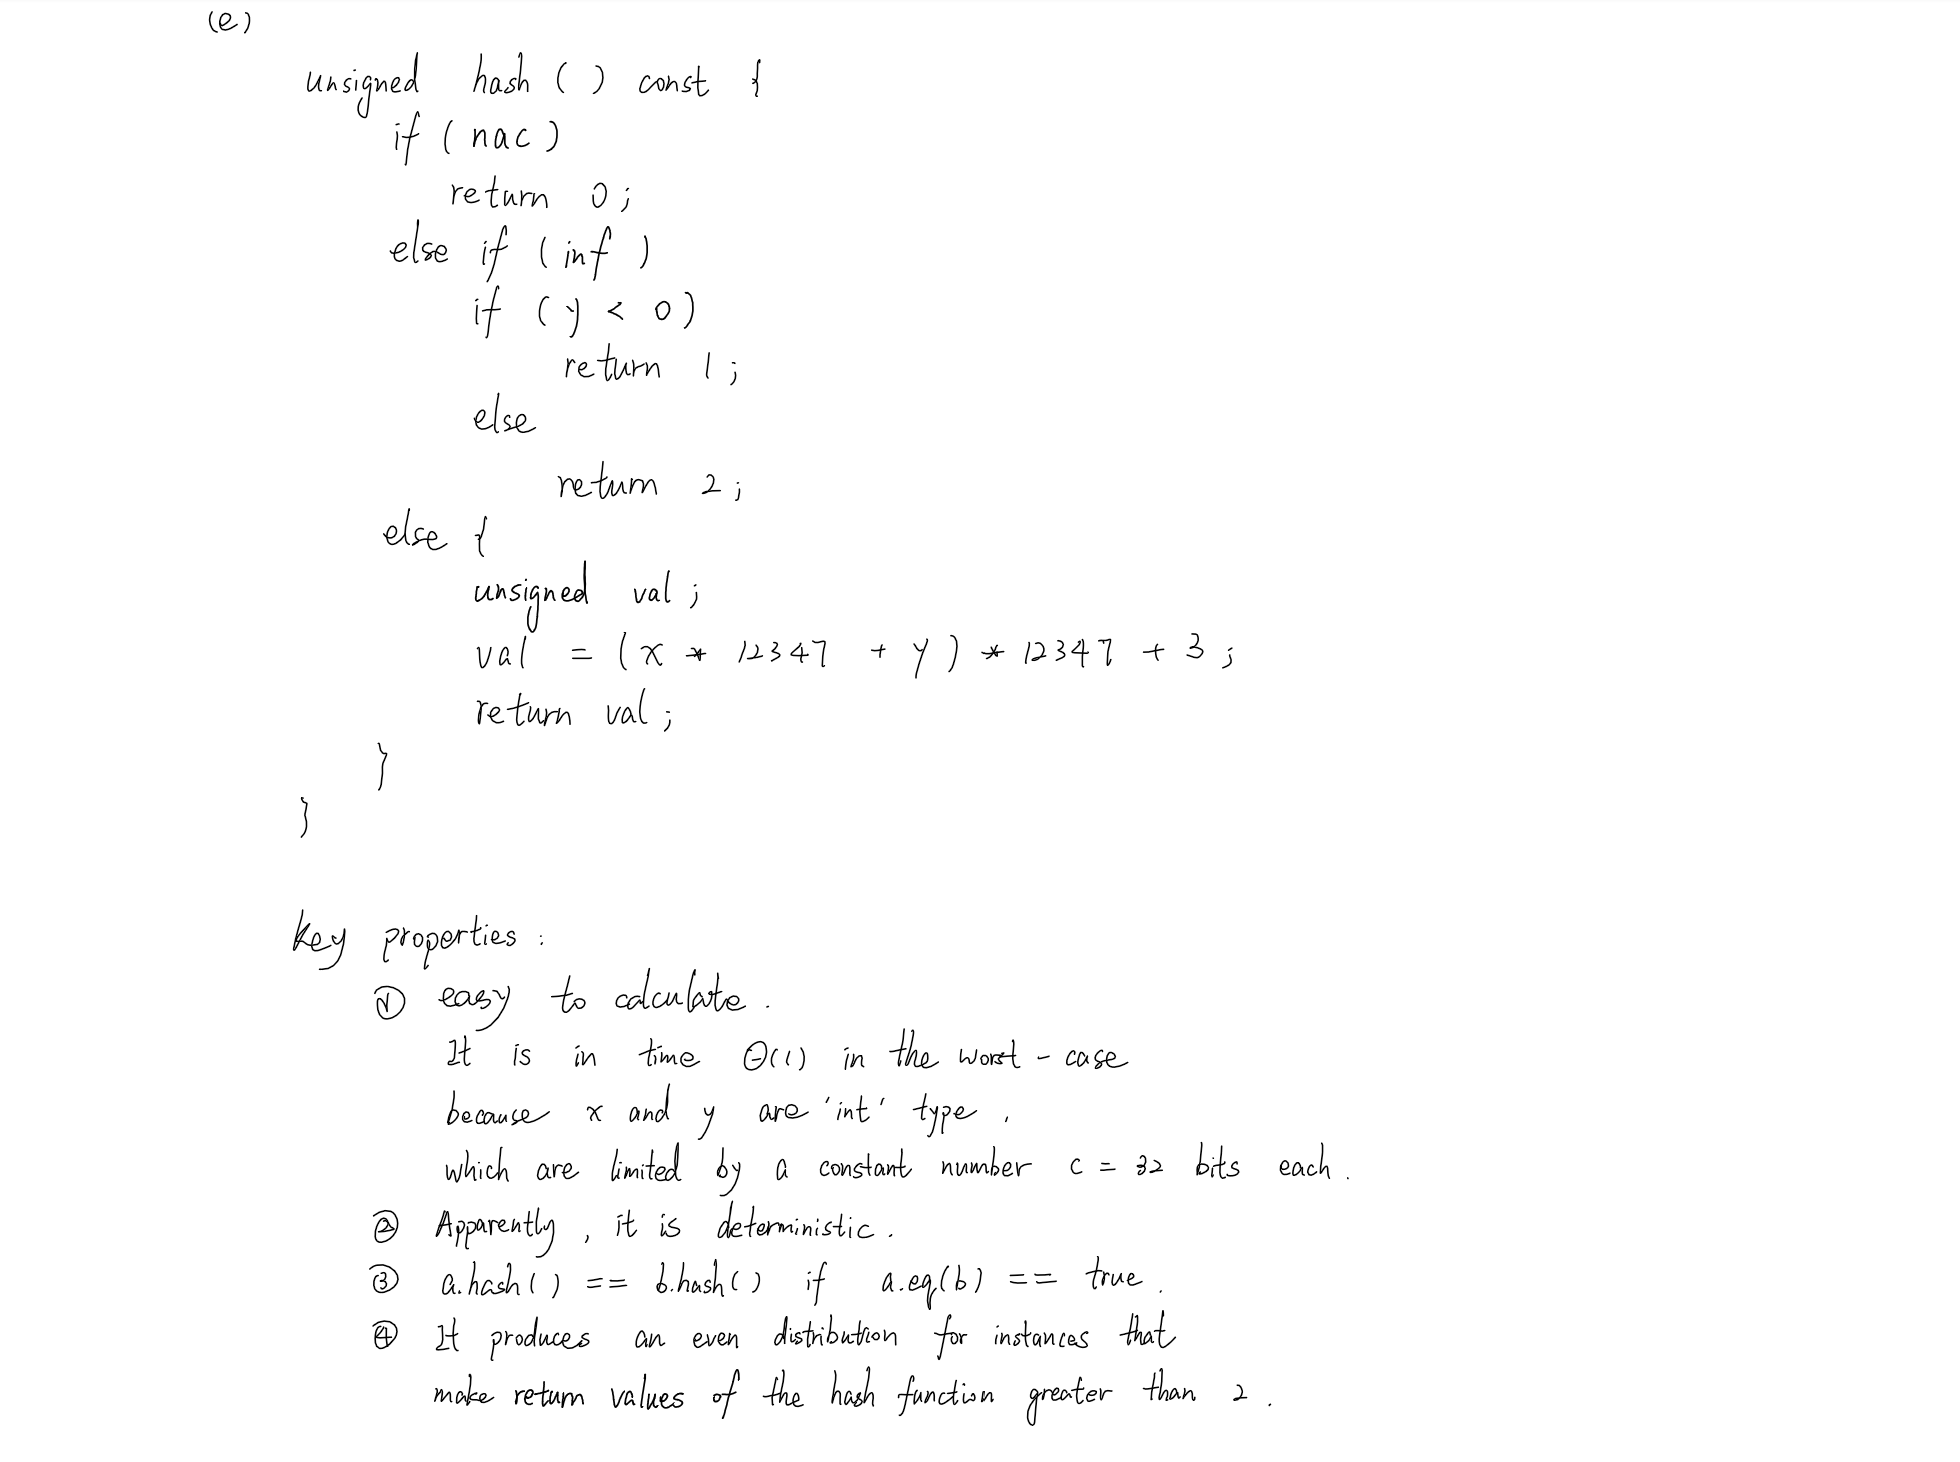 (e)
unsigned hash ( ) const {
if ( nac )
return 0 ;
else if ( inf )
if ( y < 0 )
return 1 ;
else
return 2 ;
else {
unsigned val ;
val = ( x * 12347 + y ) * 12347 + 3 ;
return val ;
}
}
key properties :
① easy to calculate .
It is in time Θ(1) in the worst - case
because x and y are 'int' type ,
which are limited by a constant number c = 32 bits each .
② Apparently , it is deterministic .
③ a.hash( ) == b.hash( ) if a.eq(b) == true .
④ It produces an even distribution for instances that
make return values of the hash function greater than 2 .